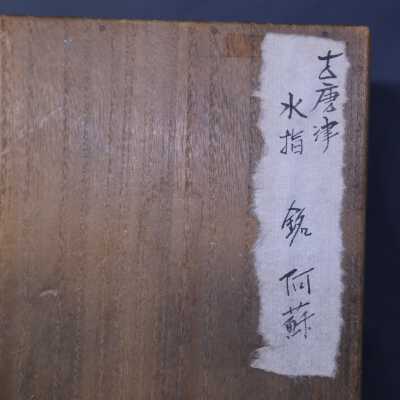 古唐津
水指 銘 阿蘇